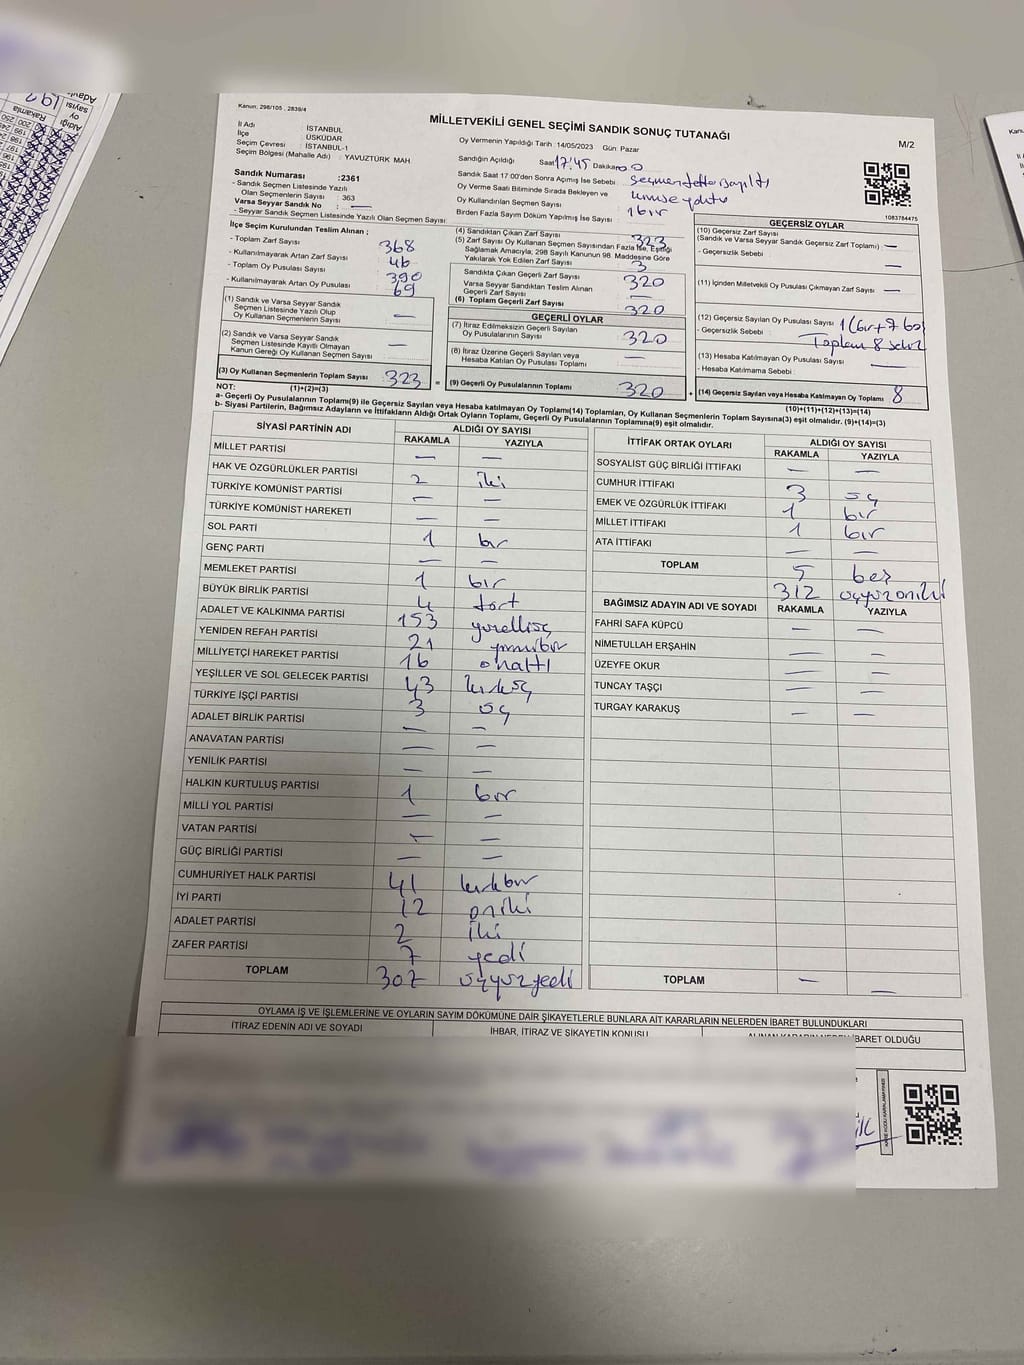 Kanun: 298/105 , 2839/4
MİLLETVEKİLİ GENEL SEÇİMİ SANDIK SONUÇ TUTANAĞI
M/2
İl Adı İSTANBUL
İlçe ÜSKÜDAR
Seçim Çevresi : İSTANBUL-1
Seçim Bölgesi (Mahalle Adı) : YAVUZTÜRK MAH
Sandık Numarası :2361
- Sandık Seçmen Listesinde Yazılı
Olan Seçmenlerin Sayısı : 363
Varsa Seyyar Sandık No : —
- Seyyar Sandık Seçmen Listesinde Yazılı Olan Seçmen Sayısı:
Oy Vermenin Yapıldığı Tarih : 14/05/2023 Gün: Pazar
Sandığın Açıldığı Saat 17:45 Dakika
Sandık Saat 17:00'den Sonra Açılmış İse Sebebi :
Oy Verme Saati Bitiminde Sırada Bekleyen ve
Oy Kullandırılan Seçmen Sayısı : kimse yoktu
Birden Fazla Sayım Döküm Yapılmış İse Sayısı : 1 bir
1083784475
İlçe Seçim Kurulundan Teslim Alınan ;
- Toplam Zarf Sayısı : 368
- Kullanılmayarak Artan Zarf Sayısı : 46
- Toplam Oy Pusulası Sayısı : 390
- Kullanılmayarak Artan Oy Pusulası : 69
(1) Sandık ve Varsa Seyyar Sandık
Seçmen Listesinde Yazılı Olup
Oy Kullanan Seçmenlerin Sayısı : —
(2) Sandık ve Varsa Seyyar Sandık
Seçmen Listesinde Kayıtlı Olmayan
Kanun Gereği Oy Kullanan Seçmen Sayısı : —
(3) Oy Kullanan Seçmenlerin Toplam Sayısı : 323
(1)+(2)=(3)
(4) Sandıktan Çıkan Zarf Sayısı : 323
(5) Zarf Sayısı Oy Kullanan Seçmen Sayısından Fazla İse, Eşitliği
Sağlamak Amacıyla; 298 Sayılı Kanunun 98. Maddesine Göre
Yakılarak Yok Edilen Zarf Sayısı : 3
Sandıkta Çıkan Geçerli Zarf Sayısı : 320
Varsa Seyyar Sandıktan Teslim Alınan
Geçerli Zarf Sayısı : —
(6) Toplam Geçerli Zarf Sayısı : 320
GEÇERLİ OYLAR
(7) İtiraz Edilmeksizin Geçerli Sayılan
Oy Pusulalarının Sayısı : 320
(8) İtiraz Üzerine Geçerli Sayılan veya
Hesaba Katılan Oy Pusulası Toplamı : —
= (9) Geçerli Oy Pusulalarının Toplamı : 320
GEÇERSİZ OYLAR
(10) Geçersiz Zarf Sayısı
(Sandık ve Varsa Seyyar Sandık Geçersiz Zarf Toplamı) : —
- Geçersizlik Sebebi : —
(11) İçinden Milletvekili Oy Pusulası Çıkmayan Zarf Sayısı : —
(12) Geçersiz Sayılan Oy Pusulası Sayısı :
- Geçersizlik Sebebi : Toplam 8 sekiz
(13) Hesaba Katılmayan Oy Pusulası Sayısı : —
- Hesaba Katılmama Sebebi :
+ (14) Geçersiz Sayılan veya Hesaba Katılmayan Oy Toplamı : 8
(10)+(11)+(12)+(13)=(14)
NOT:
a- Geçerli Oy Pusulalarının Toplamı(9) ile Geçersiz Sayılan veya Hesaba katılmayan Oy Toplamı(14) Toplamları, Oy Kullanan Seçmenlerin Toplam Sayısına(3) eşit olmalıdır. (9)+(14)=(3)
b- Siyasi Partilerin, Bağımsız Adayların ve İttifakların Aldığı Ortak Oyların Toplamı, Geçerli Oy Pusulalarının Toplamına(9) eşit olmalıdır.
SİYASİ PARTİNİN ADI ALDIĞI OY SAYISI
RAKAMLA YAZIYLA
MİLLET PARTİSİ — —
HAK VE ÖZGÜRLÜKLER PARTİSİ 2 iki
TÜRKİYE KOMÜNİST PARTİSİ — —
TÜRKİYE KOMÜNİST HAREKETİ — —
SOL PARTİ 1 bir
GENÇ PARTİ — —
MEMLEKET PARTİSİ 1 bir
BÜYÜK BİRLİK PARTİSİ 4 dört
ADALET VE KALKINMA PARTİSİ 153 yüzelliüç
YENİDEN REFAH PARTİSİ 21 yirmibir
MİLLİYETÇİ HAREKET PARTİSİ 16 onaltı
YEŞİLLER VE SOL GELECEK PARTİSİ 43 kırküç
TÜRKİYE İŞÇİ PARTİSİ 3 üç
ADALET BİRLİK PARTİSİ — —
ANAVATAN PARTİSİ — —
YENİLİK PARTİSİ — —
HALKIN KURTULUŞ PARTİSİ 1 bir
MİLLİ YOL PARTİSİ — —
VATAN PARTİSİ — —
GÜÇ BİRLİĞİ PARTİSİ — —
CUMHURİYET HALK PARTİSİ 41 kırkbir
İYİ PARTİ 12 oniki
ADALET PARTİSİ 2 iki
ZAFER PARTİSİ 7 yedi
TOPLAM 307 üçyüzyedi
İTTİFAK ORTAK OYLARI ALDIĞI OY SAYISI
RAKAMLA YAZIYLA
SOSYALİST GÜÇ BİRLİĞİ İTTİFAKI — —
CUMHUR İTTİFAKI 3 üç
EMEK VE ÖZGÜRLÜK İTTİFAKI 1 bir
MİLLET İTTİFAKI 1 bir
ATA İTTİFAKI — —
TOPLAM 5 beş
312 üçyüzoniki
BAĞIMSIZ ADAYIN ADI VE SOYADI RAKAMLA YAZIYLA
FAHRİ SAFA KÜPCÜ — —
NİMETULLAH ERŞAHİN — —
ÜZEYFE OKUR — —
TUNCAY TAŞÇI — —
TURGAY KARAKUŞ — —
TOPLAM — —
OYLAMA İŞ VE İŞLEMLERİNE VE OYLARIN SAYIM DÖKÜMÜNE DAİR ŞİKAYETLERLE BUNLARA AİT KARARLARIN NELERDEN İBARET BULUNDUKLARI
İTİRAZ EDENİN ADI VE SOYADI İHBAR, İTİRAZ VE ŞİKAYETİN KONUSU ALINAN KARARIN NEDEN İBARET OLDUĞU